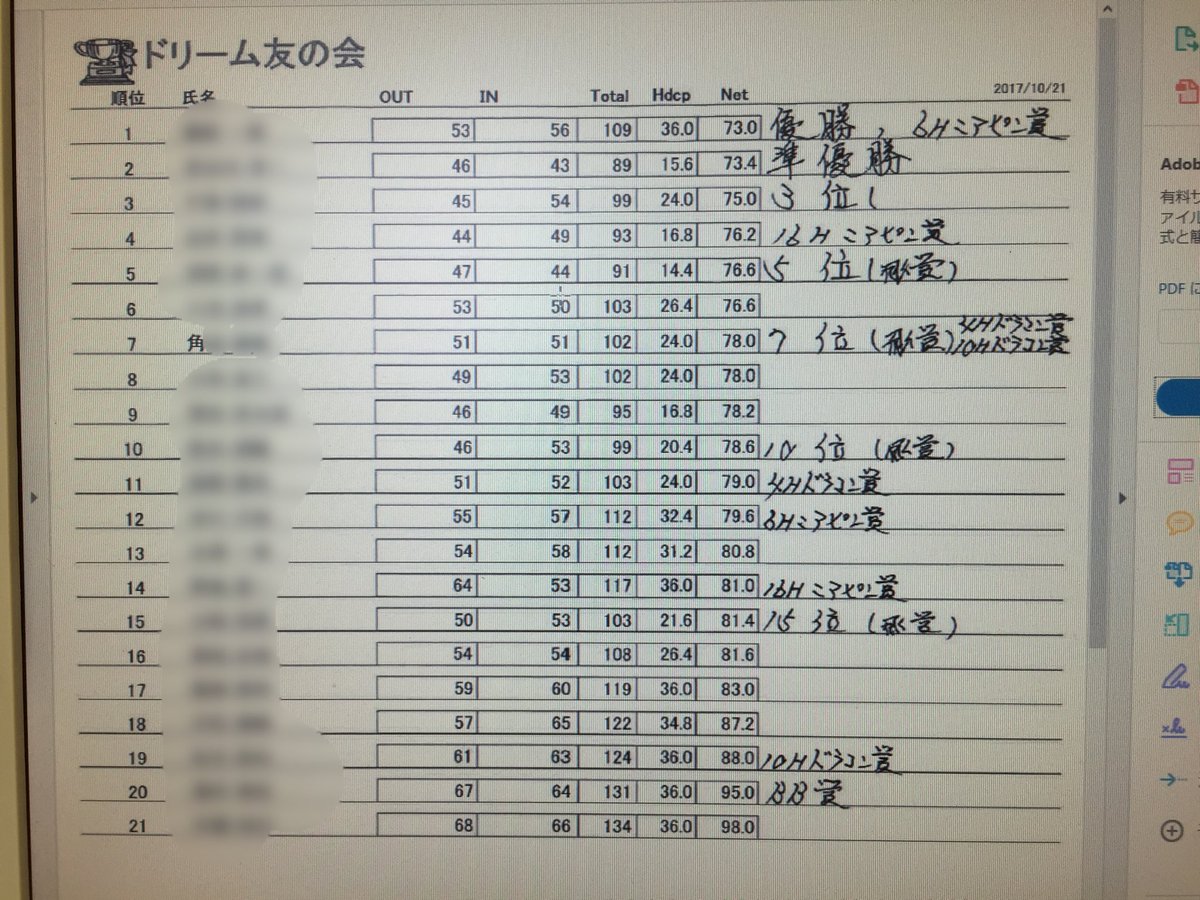 ドリーム友の会
2017/10/21
順位 氏名 OUT IN Total Hdcp Net
1 53 56 109 36.0 73.0 優勝, 6Hニアピン賞
2 46 43 89 15.6 73.4 準優勝
3 45 54 99 24.0 75.0 3位
4 44 49 93 16.8 76.2 16Hニアピン賞
5 47 44 91 14.4 76.6 5位(飛賞)
6 53 50 103 26.4 76.6
7 角 51 51 102 24.0 78.0 7位(飛賞) 4Hドラコン賞
10Hドラコン賞
8 49 53 102 24.0 78.0
9 46 49 95 16.8 78.2
10 46 53 99 20.4 78.6 10位(飛賞)
11 51 52 103 24.0 79.0 4Hドラコン賞
12 55 57 112 32.4 79.6 6Hニアピン賞
13 54 58 112 31.2 80.8
14 64 53 117 36.0 81.0 16Hニアピン賞
15 50 53 103 21.6 81.4 15位(飛賞)
16 54 54 108 26.4 81.6
17 59 60 119 36.0 83.0
18 57 65 122 34.8 87.2
19 61 63 124 36.0 88.0 10Hドラコン賞
20 67 64 131 36.0 95.0 BB賞
21 68 66 134 36.0 98.0
Adob
有料サ
アイル
式と簡
PDF に